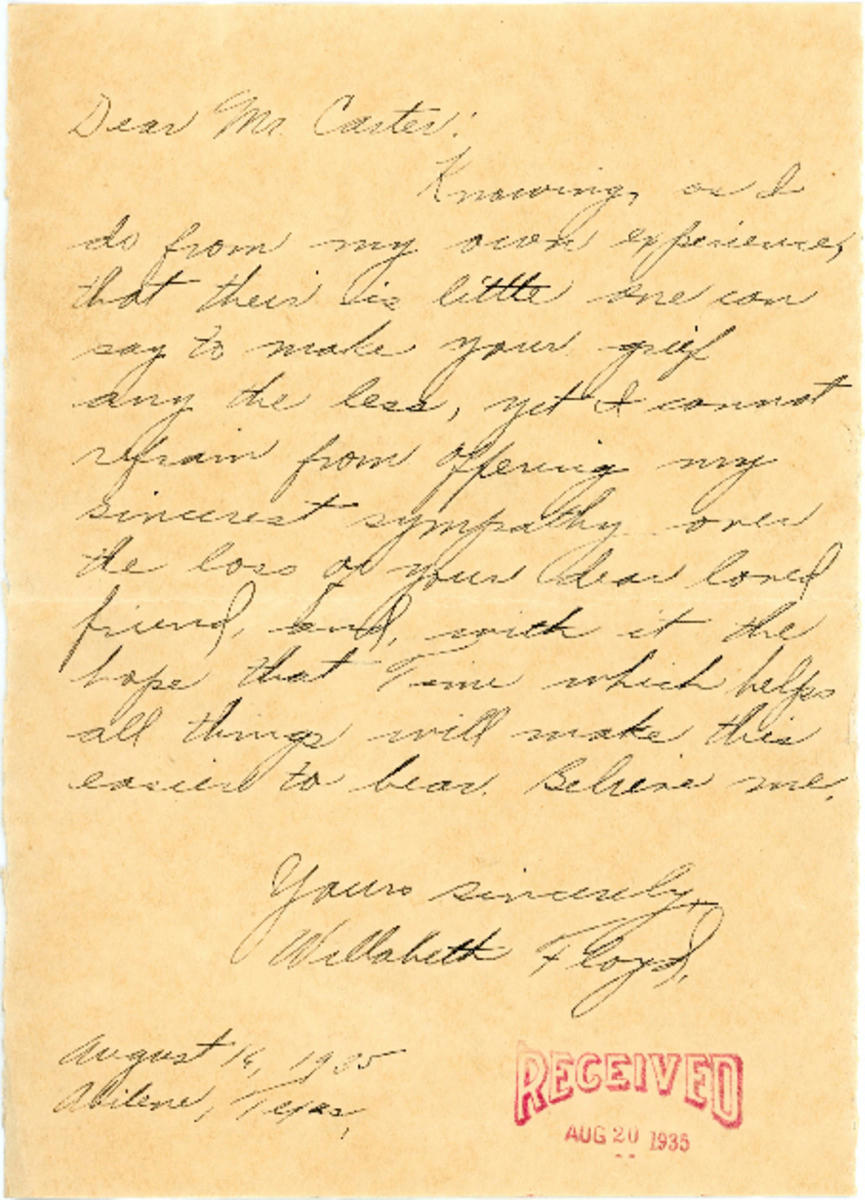 Dear Mr. Carter:
Knowing, as I
do from my own experience,
that their is little one can
say to make your grief
any the less, yet I cannot
refrain from offering my
sincerest sympathy over
the loss of your dear loved
friend, and, with it the
hope that Time which helps
all things will make this
easier to bear. Believe me.
Yours sincerely,
Willabeth Floyd.
August 16, 1935
Abilene, Texas,
RECEIVED
AUG 20 1935